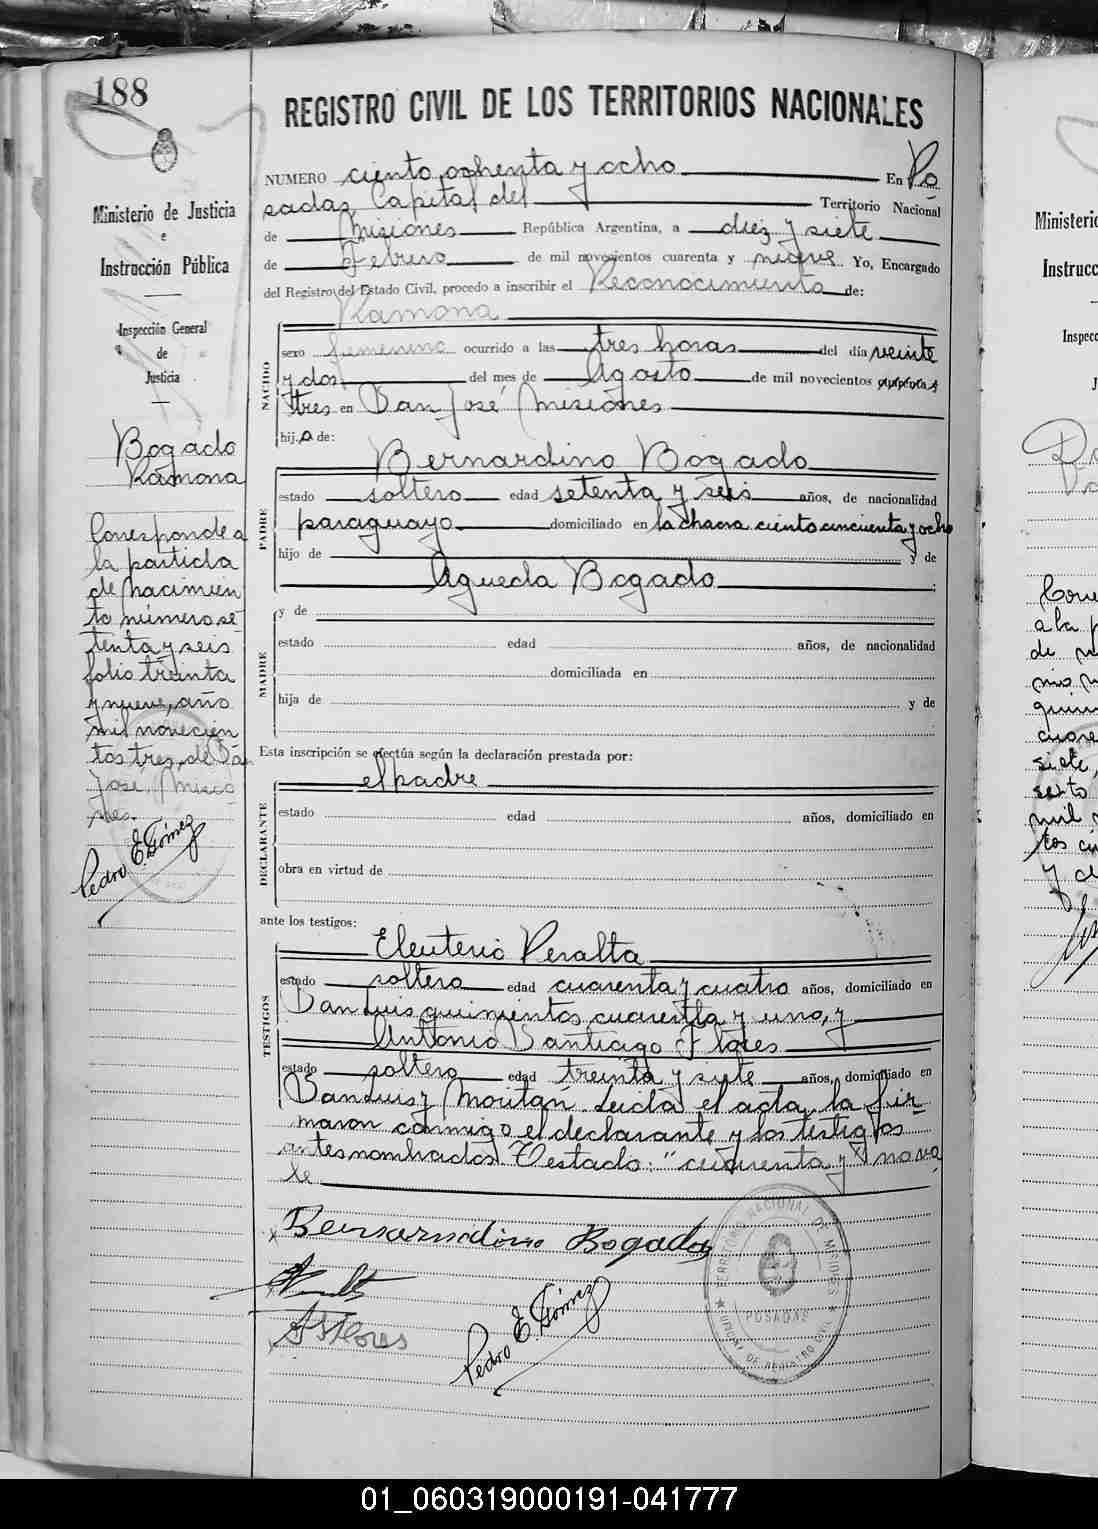 188
REGISTRO CIVIL DE LOS TERRITORIOS NACIONALES
Ministerio de Justicia
e
Instrucción Pública
Inspección General
de
Justicia
Bogado
Ramona
Corresponde a
la partida
de nacimien
to número se
tenta y seis
folio treinta
y nueve, año
mil novecien
tos tres, de San
José, Misio
nes.
Pedro E. Gómez
NUMERO ciento ochenta y ocho En Po
sadas, Capital del Territorio Nacional
de Misiones República Argentina, a diez y siete
de Febrero de mil novecientos cuarenta y nueve Yo, Encargado
del Registro del Estado Civil, procedo a inscribir el Reconocimiento de:
Ramona
NACIDO
sexo femenino ocurrido a las tres horas del día veinte
y dos del mes de Agosto de mil novecientos cuarenta y
tres en San José Misiones
hija de:
PADRE
Bernardino Bogado
estado soltero edad setenta y seis años, de nacionalidad
paraguayo domiciliado en la chacra ciento cincuenta y ocho
hijo de y de
Agueda Bogado
MADRE
y de
estado edad años, de nacionalidad
domiciliada en
hija de y de
Esta inscripción se efectúa según la declaración prestada por:
DECLARANTE
el padre
estado edad años, domiciliado en
obra en virtud de
ante los testigos:
TESTIGOS
Eleuterio Peralta
estado soltero edad cuarenta y cuatro años, domiciliado en
San Luis quinientos cuarenta y uno, y
Antonio Santiago Flores
estado soltero edad treinta y siete años, domiciliado en
San Luis y Moritán. Leida el acta, la fir-
maron conmigo el declarante y los testigos
antes nombrados Testado: "cuarenta y" no va
le
Bernardino Bogado
A S Flores
Pedro E. Gómez
TERRITORIO NACIONAL DE MISIONES
POSADAS
OFICINA DE REGISTRO CIVIL
Ministerio
Instrucc
Inspecc
J
Corre
a la p
siete,
mil n
01_060319000191-041777